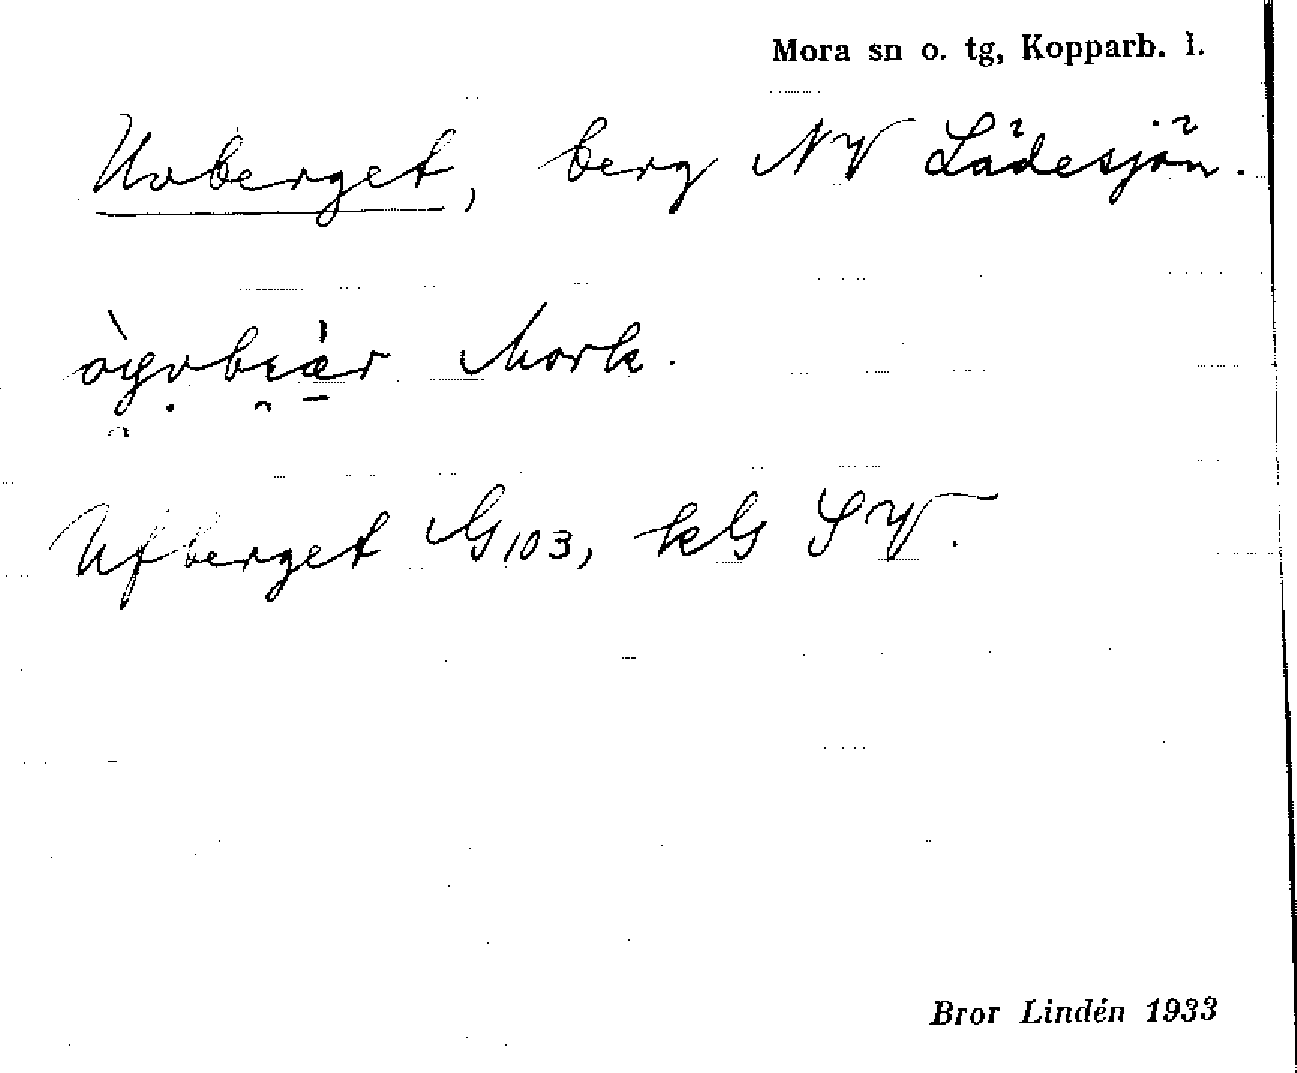 Mora sn o. tg, Kopparb. l.
Uvberget, berg NV Lådesjön.
Mork.
Ufberget G103, kG SV.
Bror Lindén 1933